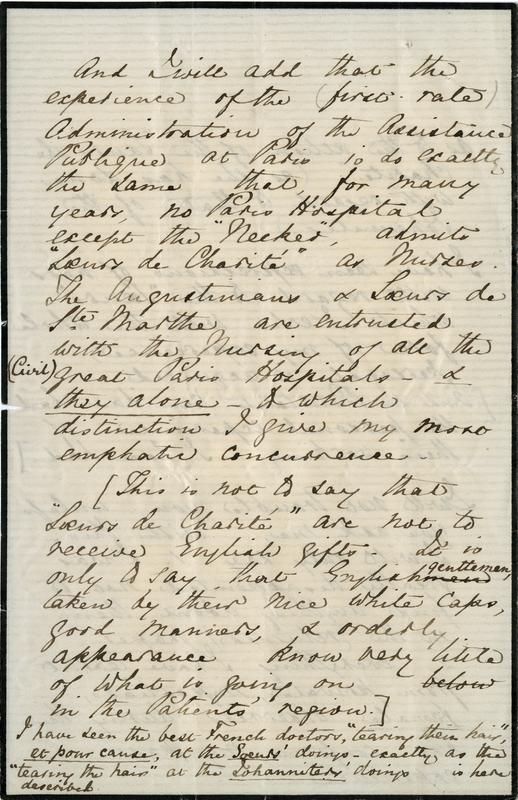 And I will add that the
experience of the (first-rate)
Administration of the Assistance
Publique at Paris is so exactly
the same that, for many
years, no Paris Hospital
except the "Necker", admits
"Sœurs de Charité" as Nurses.
The Augustinians & Sœurs de
Ste Marthe, are entrusted
with the Nursing of all the
(Civil) great Paris Hospitals - &
they alone - to which
distinction I give my most
emphatic concurrence.
[This is not to say that
"Sœurs de Charité" are not to
receive English gifts - It is
only to say that English men gentlemen,
taken by their nice white caps,
good manners, & orderly
appearance know very little
of what is going on below
in the Patients' region.]
I have seen the best French doctors, "tearing their hair",
et pour cause, at the Soeurs' doings - exactly as the
"tearing the hair" at the Johanniters doings is here
described